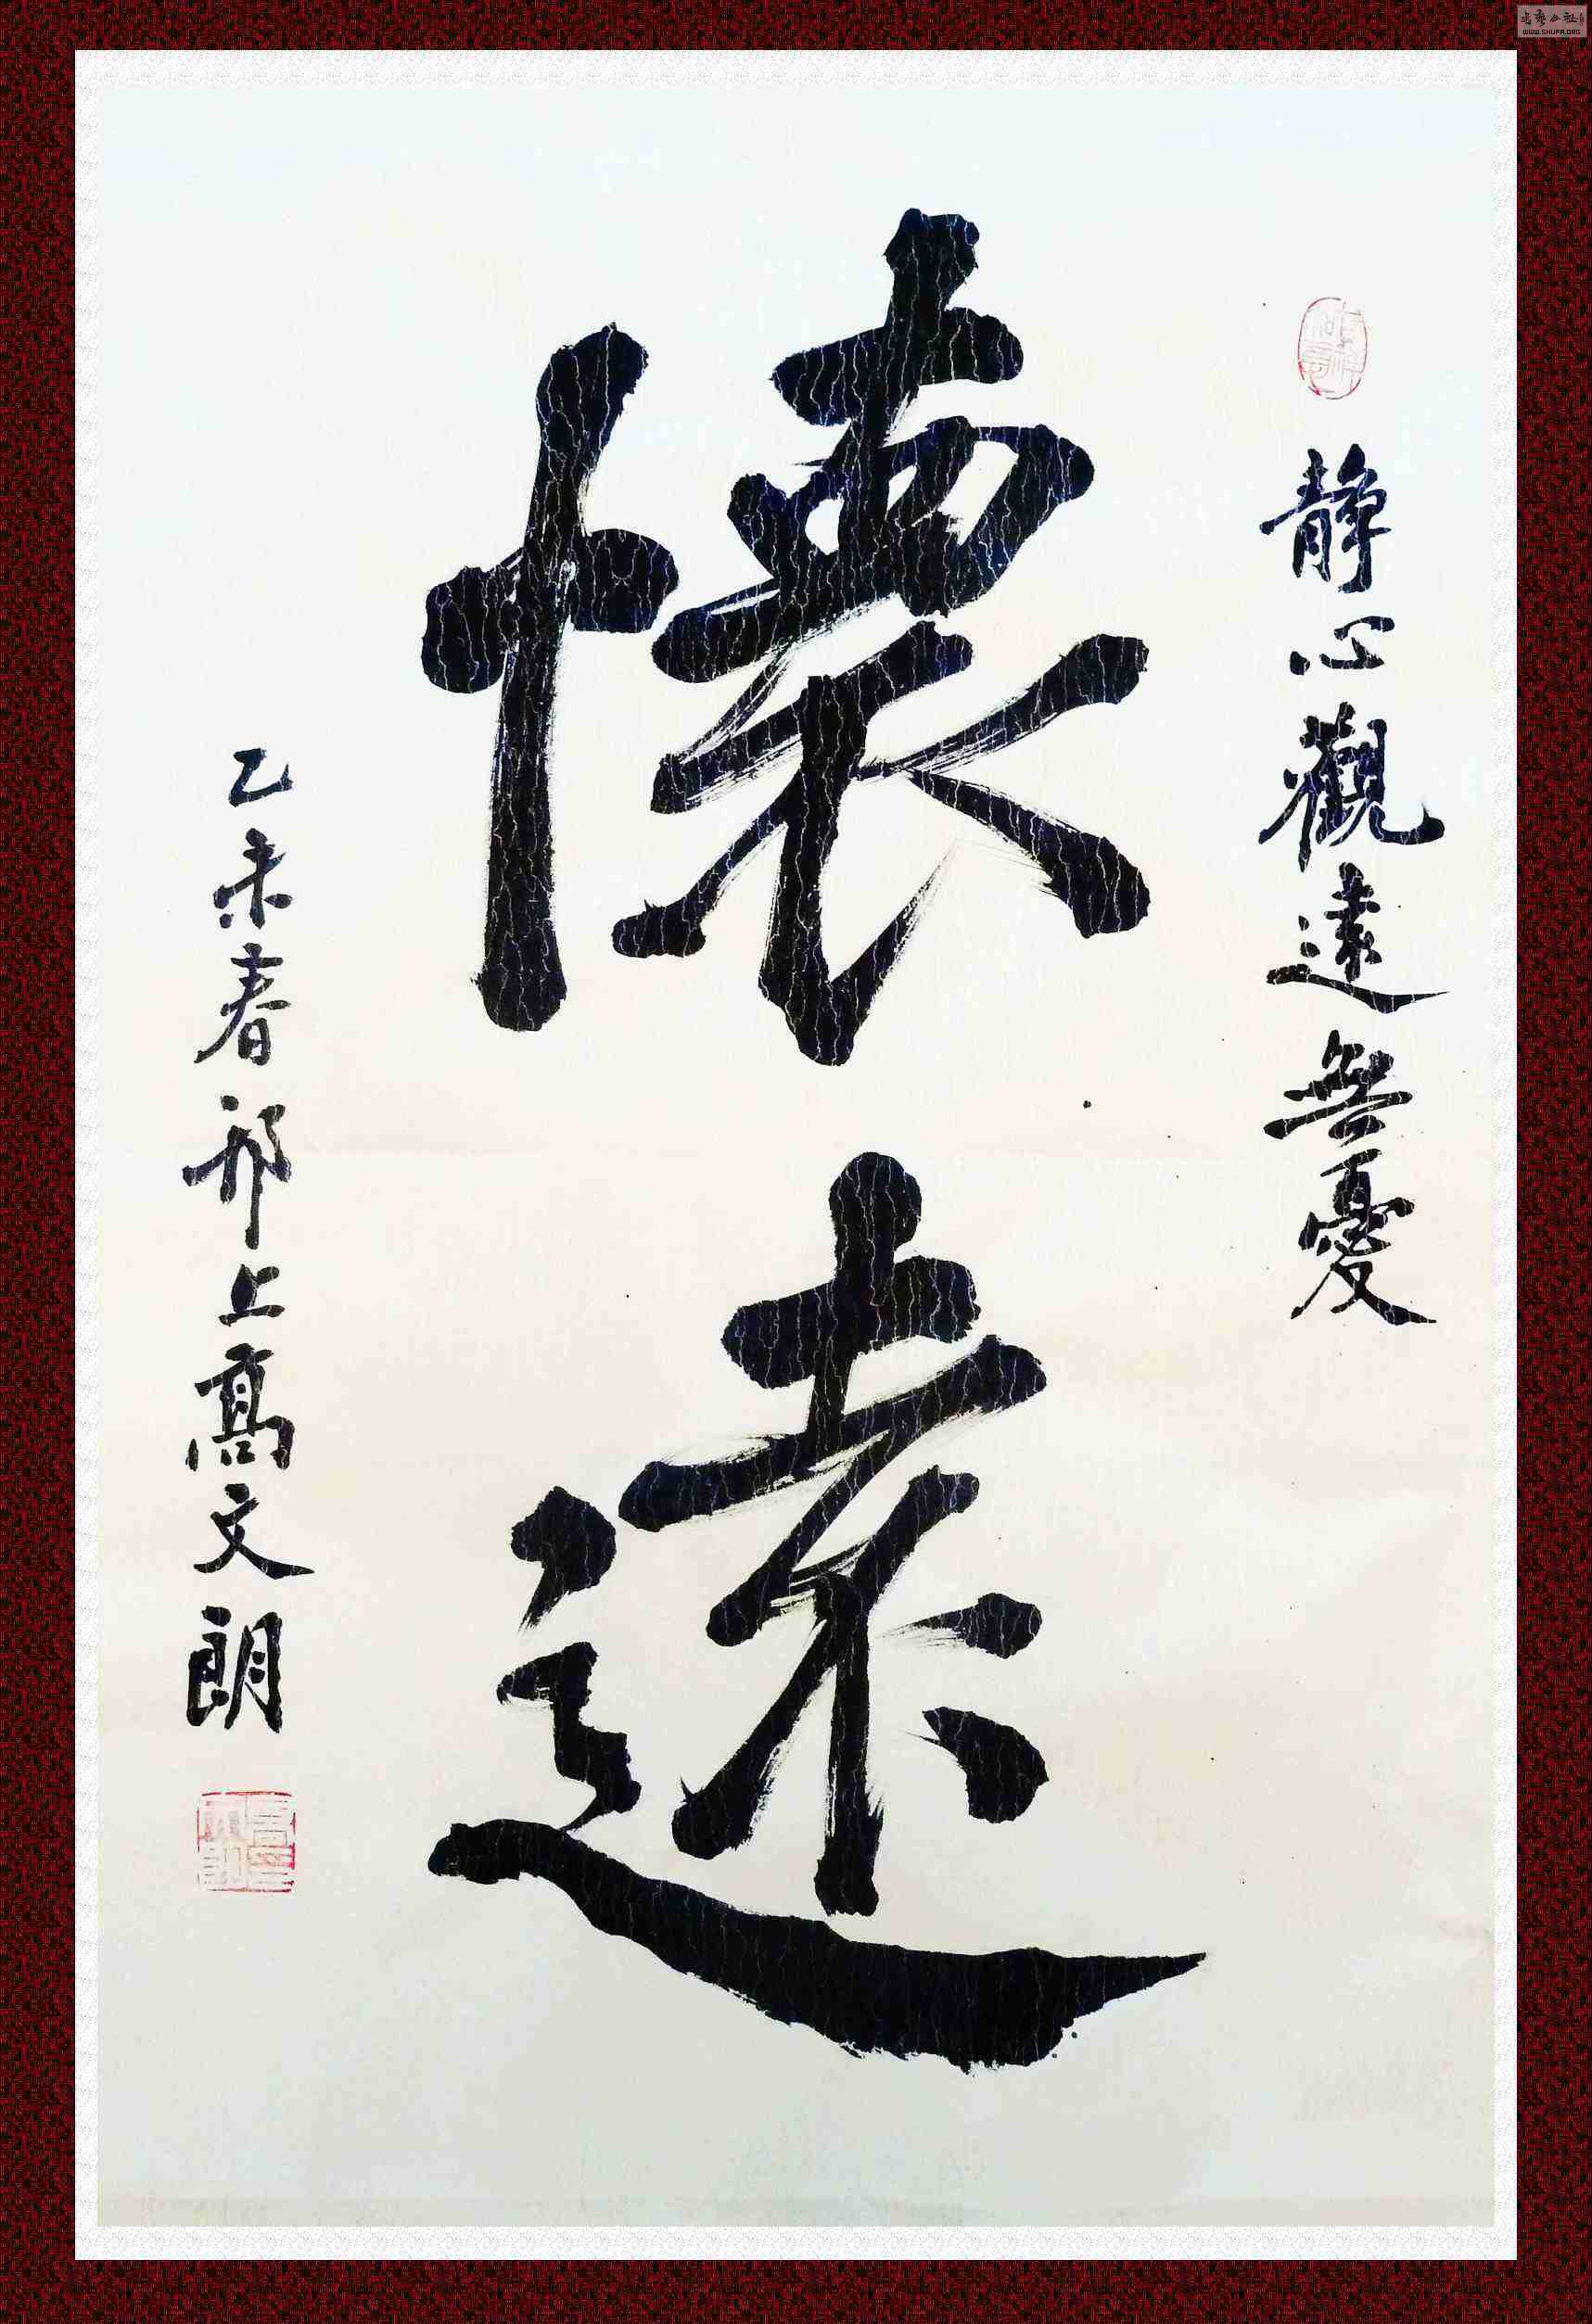 静心觀遠無憂
懷遠
乙未春邗上高文朗
WWW.SHUFA.ORG